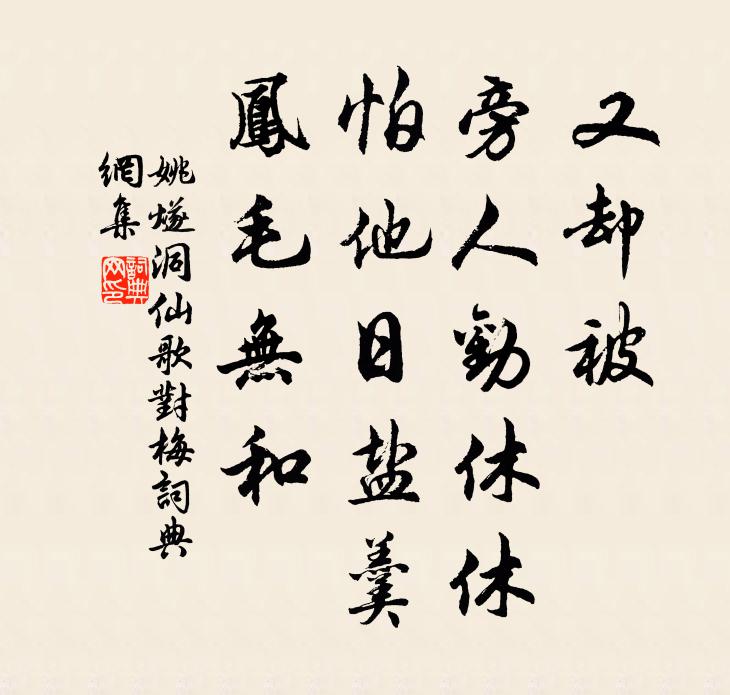 又却被
旁人勸休休
怕他日盐羹
鳳毛無和
姚燧洞仙歌對梅詞典
網集
詞典
网印